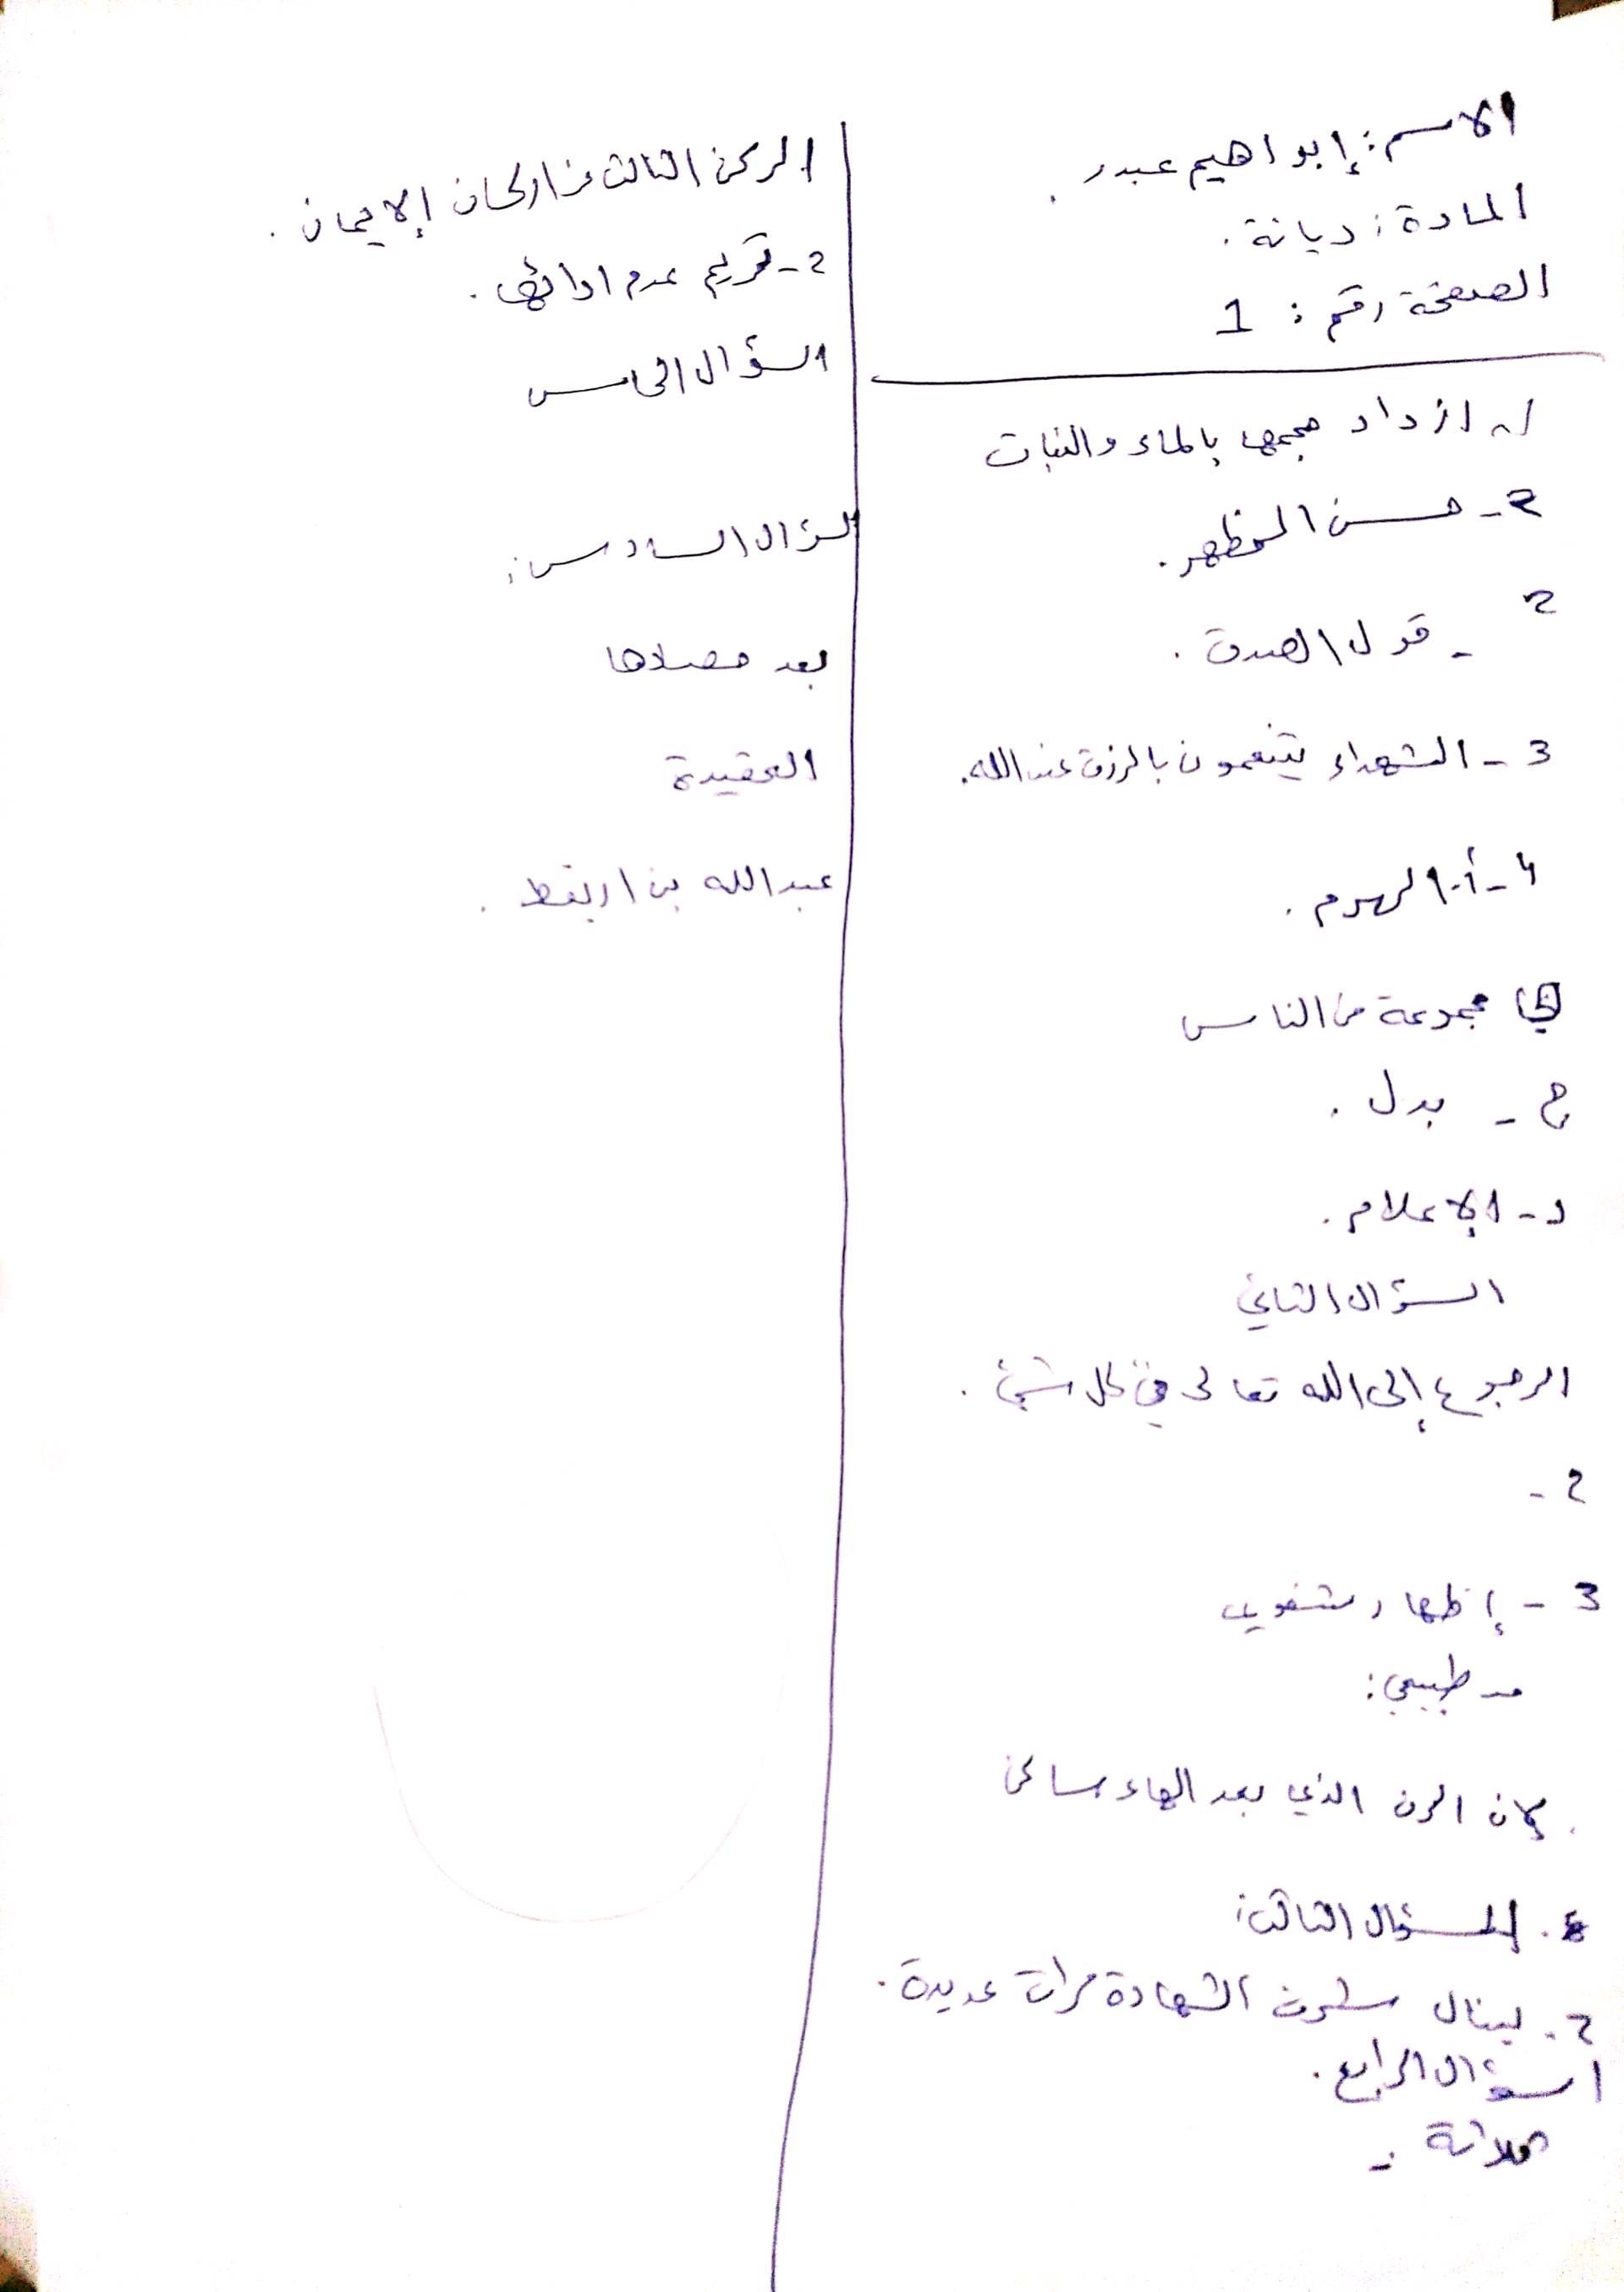 الاسم: إبراهيم عبدر.
المادة: ديانة.
الصفحة رقم: 1
1- ازداد حجمها بالماء والنبات
2- حسن المظهر.
2
- قول الصدق.
3- الشهداء يتنعمون بالرزق عند الله.
4- أ- الهرم.
مجموعة من الناس
ج - بدل.
د- الإعلام.
السؤال الثاني
الرجوع إلى الله تعالى في كل شيئ.
2-
3- إظهار شفوي
مد طبيعي:
لان الرن الذي بعد الهاء ساكن
السؤال الثالث:
2. لينال شرف الشهادة مرات عديدة.
اسؤال الرابع.
الركن الثالث من اركان الإيمان.
2- تحريم عدم ادائها.
السؤال الخامس
السؤال السادس:
بعد صلاها
العقيدة
عبد الله بن اريقط.